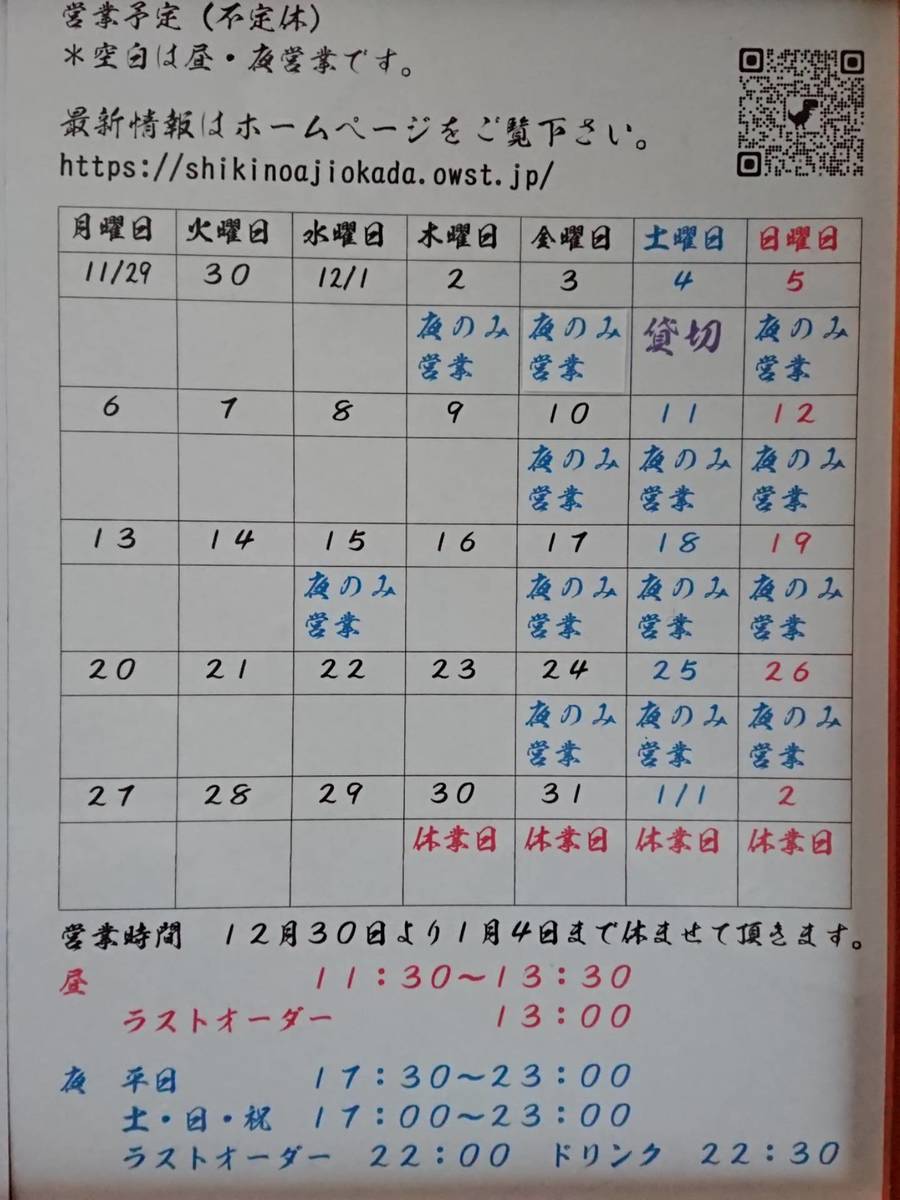 営業予定（不定休）
＊空白は昼・夜営業です。
最新情報はホームページをご覧下さい。
https://shikinoajiokada.owst.jp/
月曜日 火曜日 水曜日 木曜日 金曜日 土曜日 日曜日
11/29 30 12/1 2 3 4 5
夜のみ 夜のみ 貸切 夜のみ
営業 営業 営業
6 7 8 9 10 11 12
夜のみ 夜のみ 夜のみ
営業 営業 営業
13 14 15 16 17 18 19
夜のみ 夜のみ 夜のみ 夜のみ
営業 営業 営業 営業
20 21 22 23 24 25 26
夜のみ 夜のみ 夜のみ
営業 営業 営業
27 28 29 30 31 1/1 2
休業日 休業日 休業日 休業日
営業時間 12月30日より1月4日まで休ませて頂きます。
昼 11：30～13：30
ラストオーダー 13：00
夜 平日 17：30～23：00
土・日・祝 17：00～23：00
ラストオーダー 22：00 ドリンク 22：30